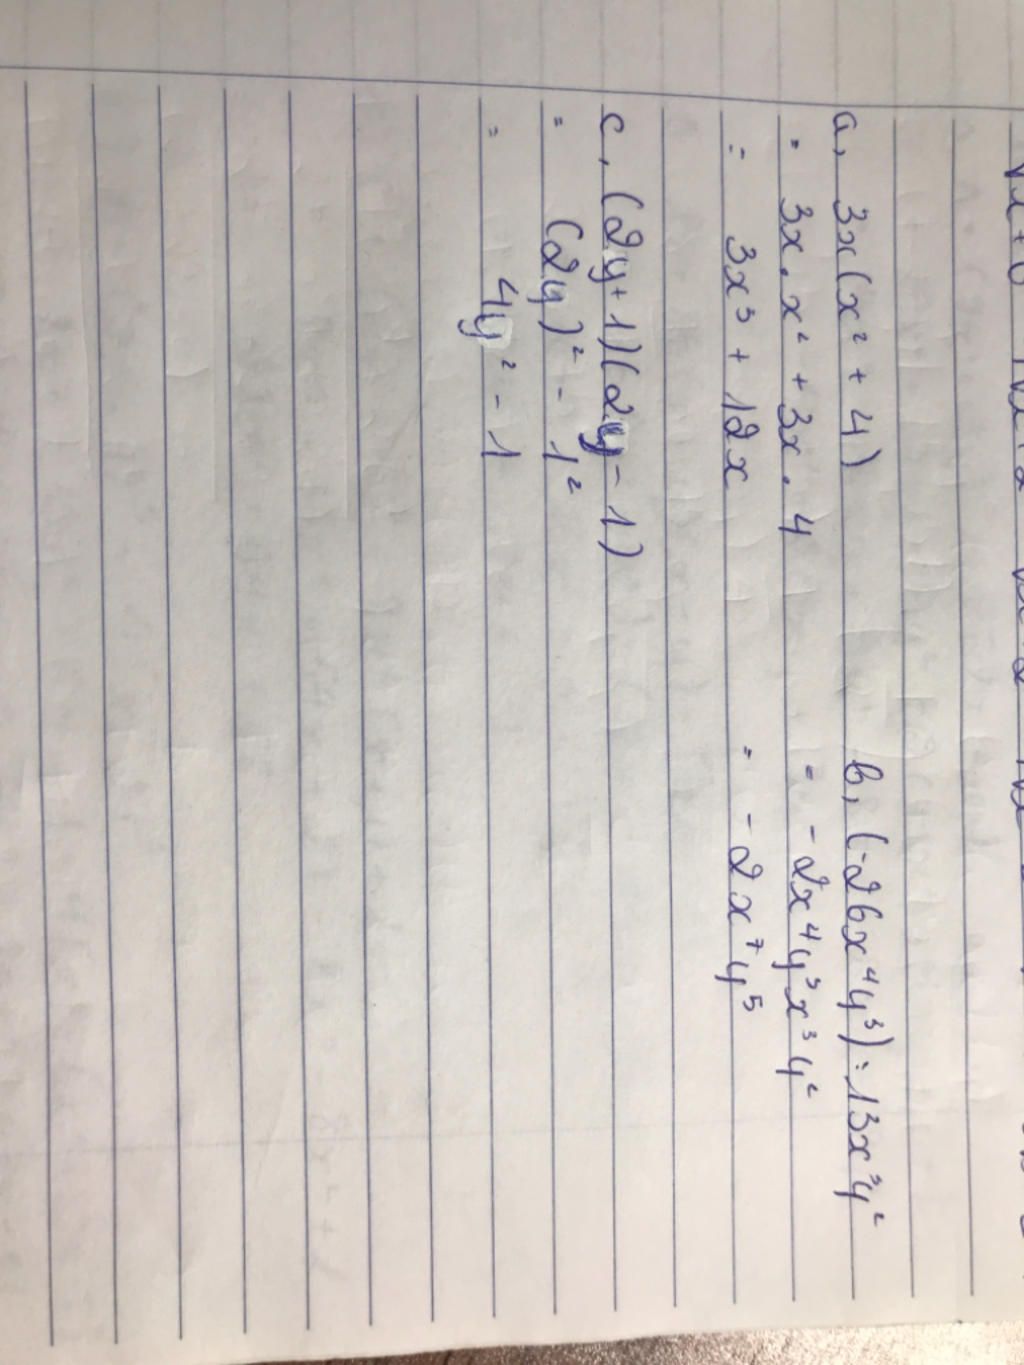 a, 3x(x² + 4)
= 3x . x² + 3x . 4
= 3x³ + 12x
b, (-26x⁴y³) : 13x³y²
= -2x⁴y³x³y²
= -2x⁷y⁵
c, (2y+1)(2y-1)
= (2y)² - 1²
= 4y² - 1